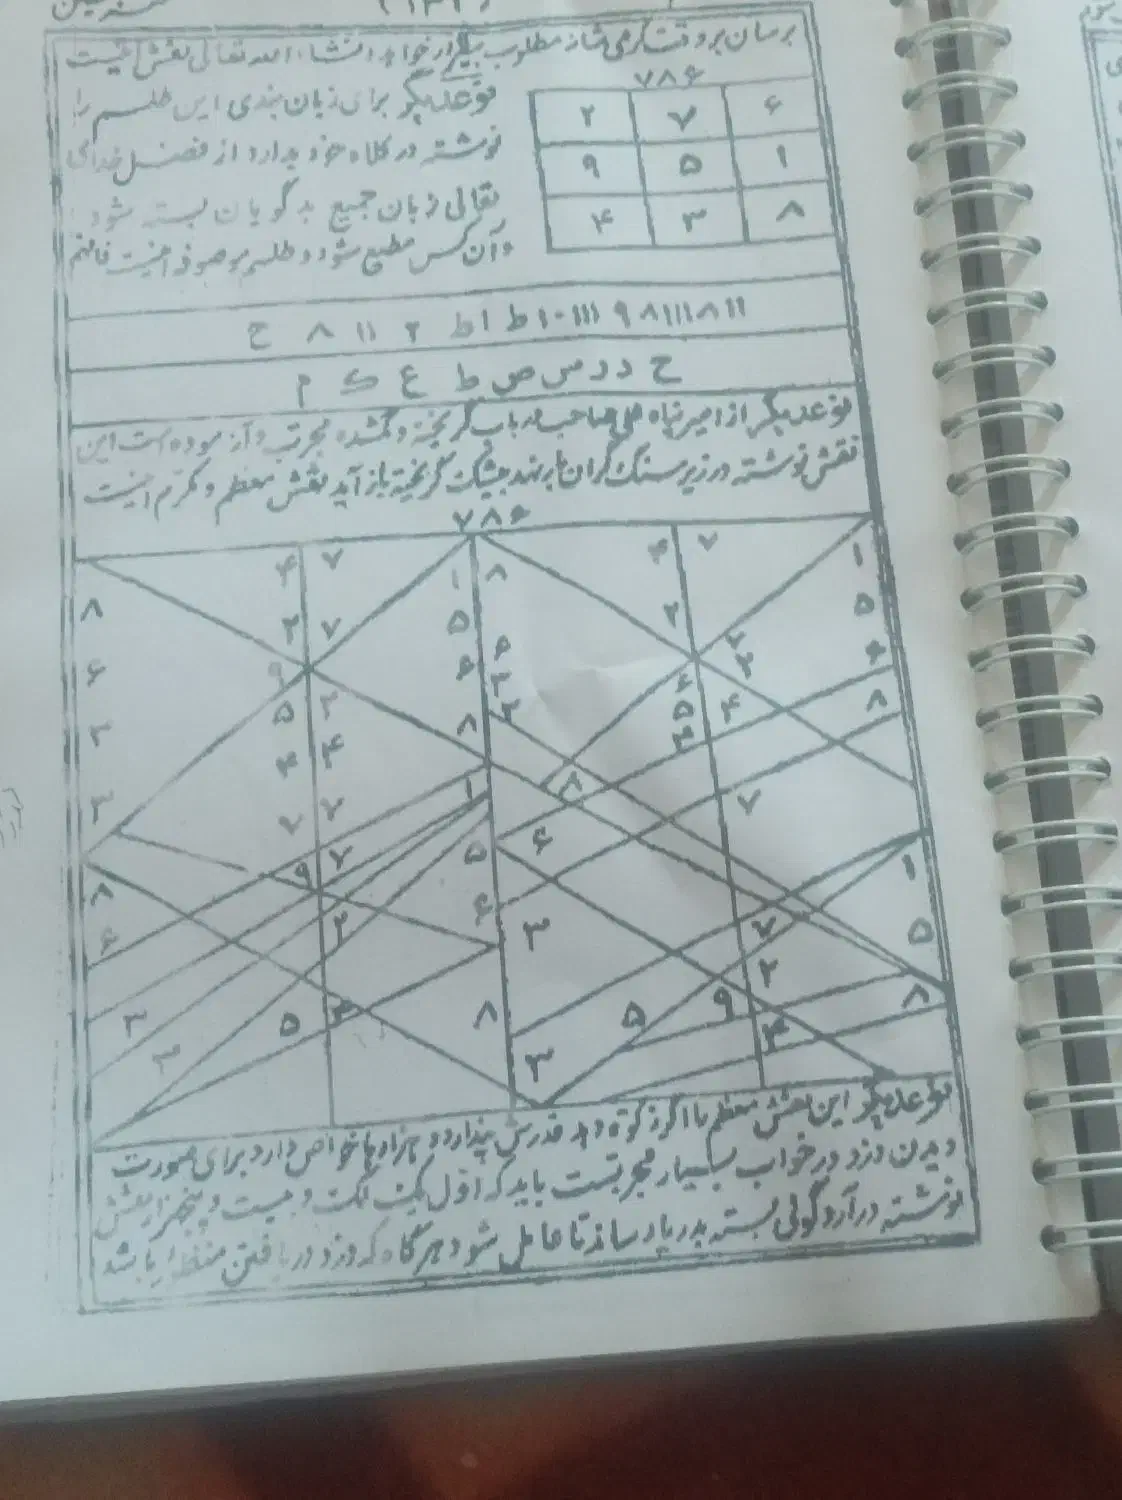 برسان بروقت گرمی نماز مطلوب بیقرار خواهد انشاء الله تعالی نقش اینست
نوعدیگر برای زبان بندی این طلسم را
نوشته در کلاه خود بدارد از فضل خدای
تعالی زبان جمیع بدگویان بسته شود
وآن کس مطیع شود وطلسم موصوف اینست فافهم
۷۸۶
۲ ۷ ۶
۹ ۵ ۱
۴ ۳ ۸
ح ۸ ۱۱ ۲ اط ط ۱۰۱۱۱ ۹ ۸۱۱۱۸۱۱
ح د د س ص ط ع ک م
نوعدیگر از امیر پناه علی صاحب در باب گریخته و گمشده مجرب و آزموده است این
نقش نوشته در زیر سنگ گران بنهد بیشک گریخته باز آید نقش معظم و مکرم اینست
۷۸۶
۴ ۷ ۱ ۸ ۴ ۷ ۱
۸ ۲ ۷ ۵ ۲ ۲ ۵
۶ ۹ ۶ ۶ ۶ ۲ ۶
۳ ۵ ۲ ۸ ۲ ۲ ۵ ۴ ۸
۴ ۴ ۳
۳ ۷ ۷ ۱ ۸ ۷
۸ ۹ ۷ ۵ ۶ ۱
۶ ۲ ۶ ۳ ۷ ۵
۳ ۵ ۴ ۸ ۵ ۹ ۲ ۸
۳ ۳ ۴
نوعدیگر این نقش معظم را اگر زکوة دهد قدرش پندارد و هزارها خواص دارد برای صورت
دیدن دزد در خواب بسیار مجربست باید که اول یک لک و بیست و پنجهزار نقش
نوشته در آرد گولی بسته بدریا رساند تا عامل شود هرگاه که دزد دریافتن منظور باشد